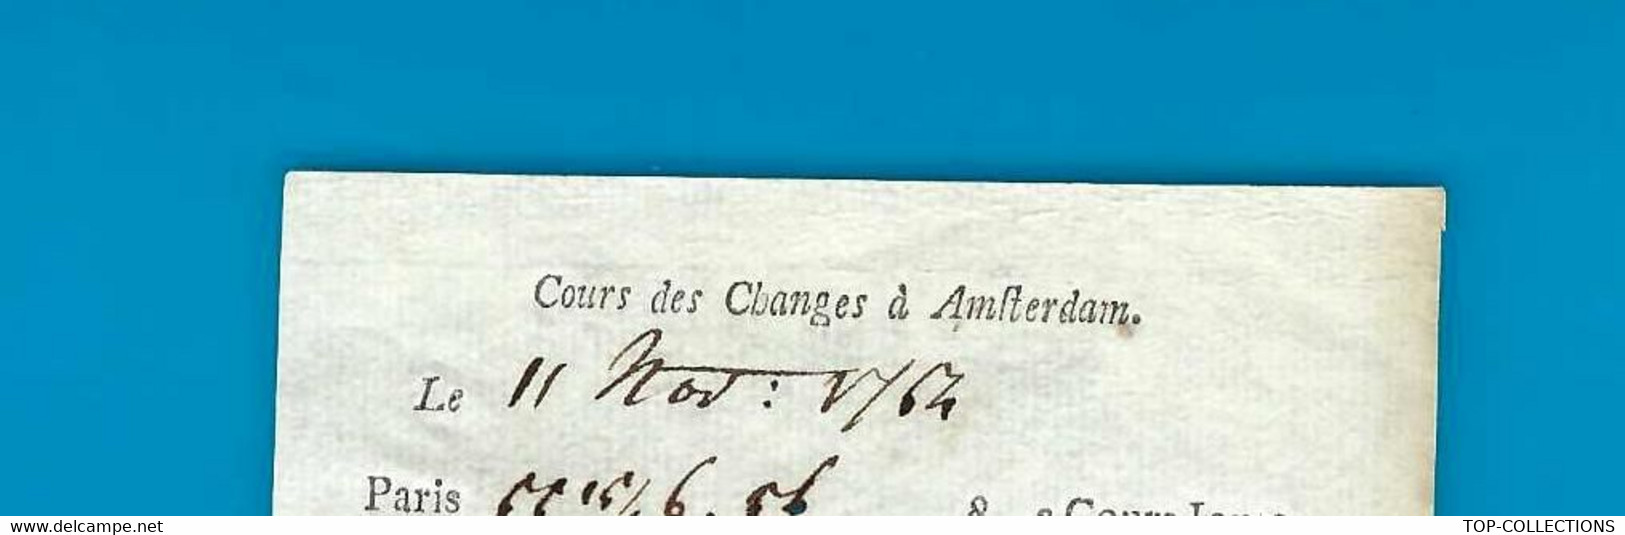 Cours des Changes à Amſterdam.
Le 11 Nov: 1764
Paris
www.delcampe.net TOP-COLLECTIONS